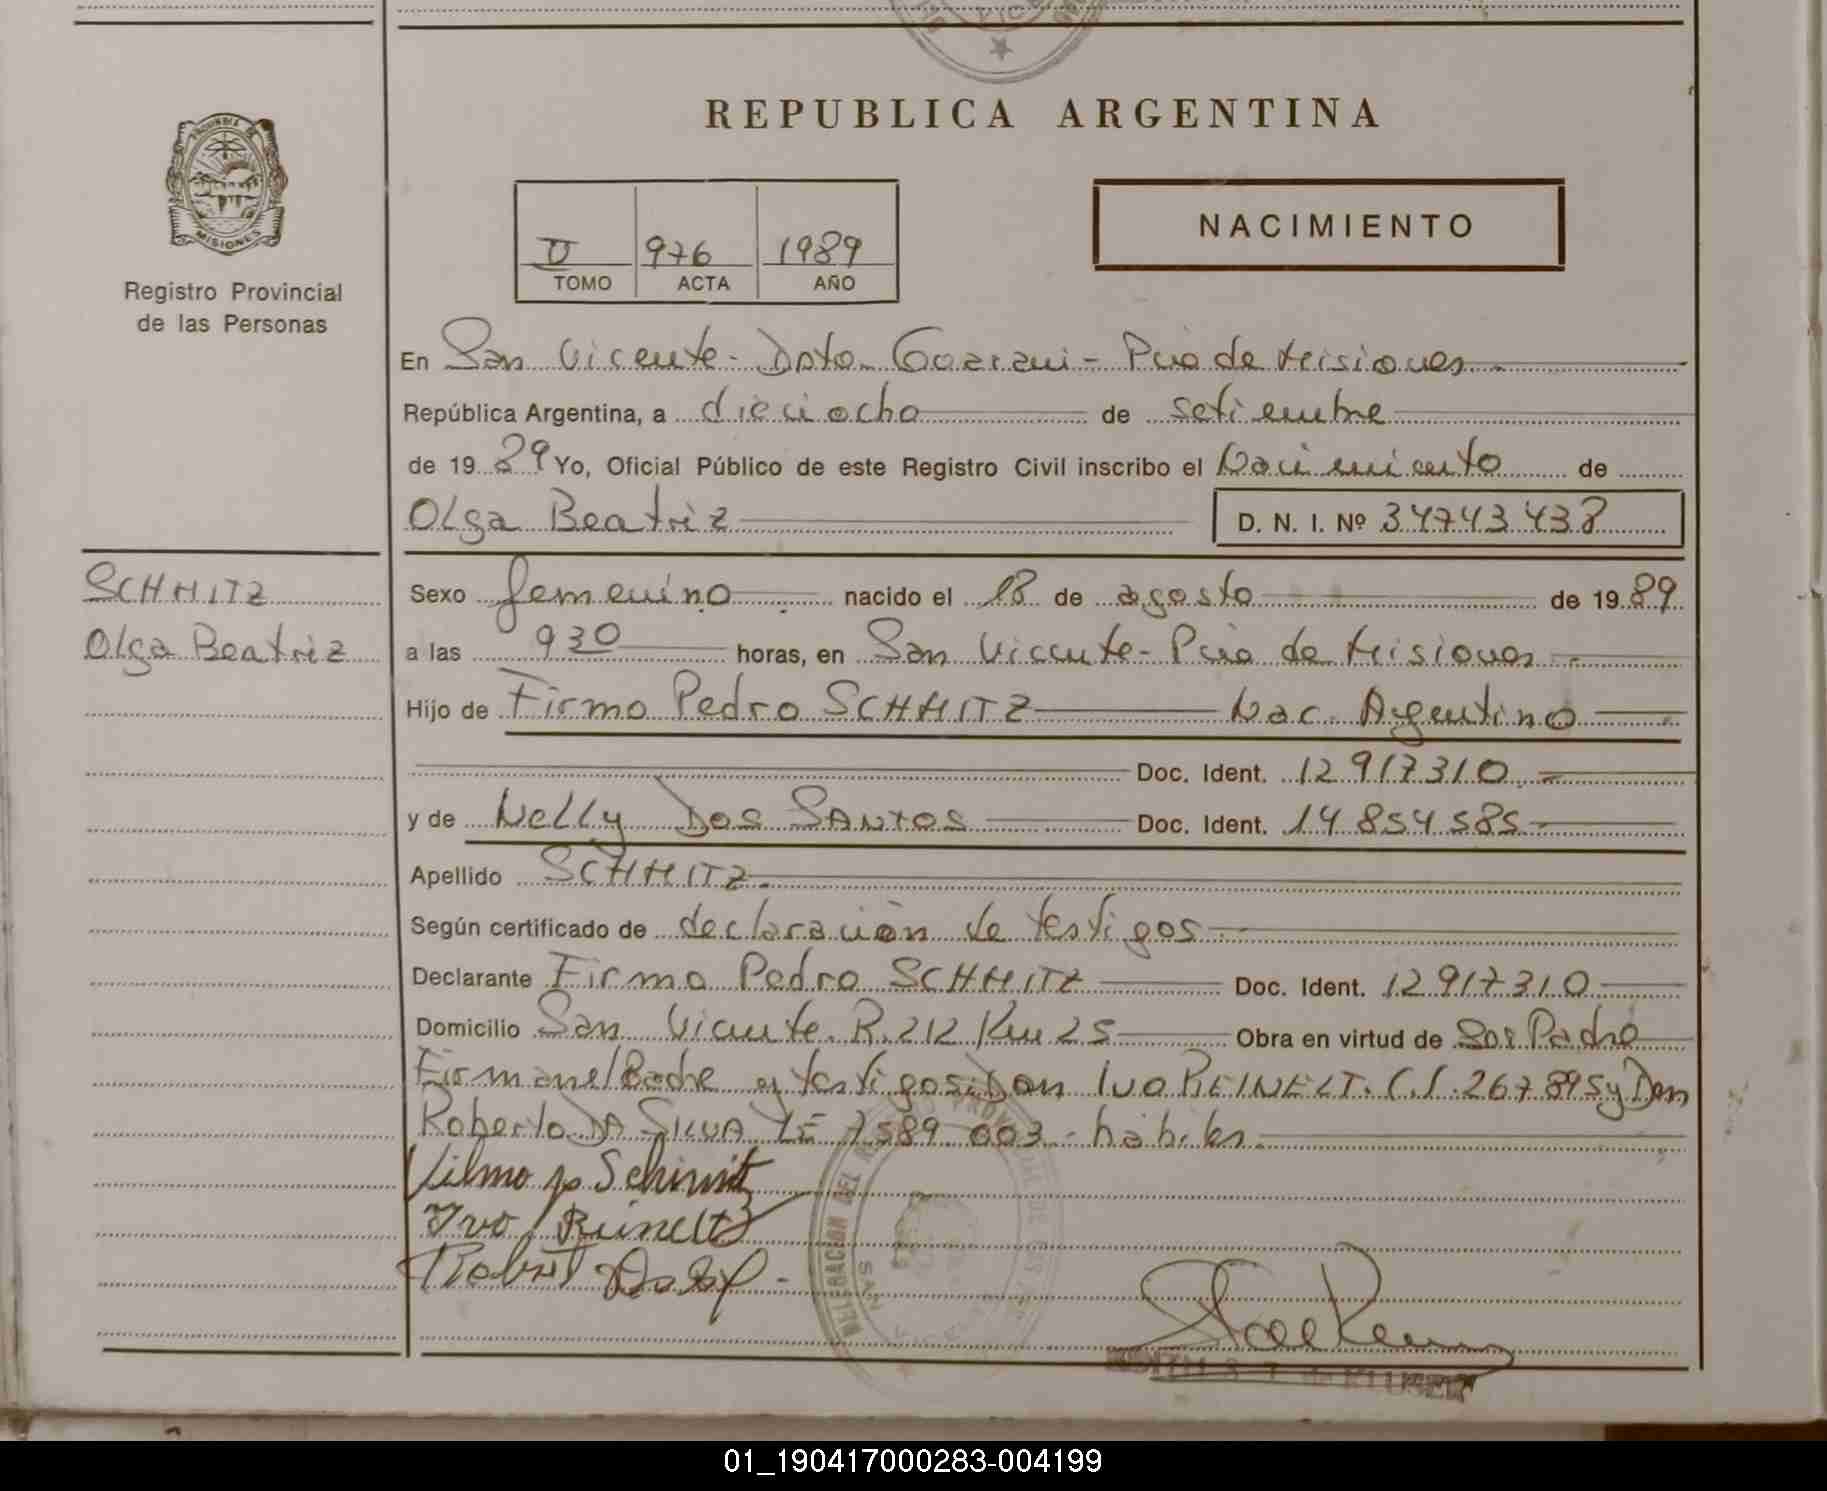 REPUBLICA ARGENTINA
PROVINCIA DE
MISIONES
Registro Provincial
de las Personas
II 976 1989
TOMO ACTA AÑO
NACIMIENTO
En San Vicente - Dpto. Guarani - Pcia de Misiones
República Argentina, a dieciocho de setiembre
de 19 89 Yo, Oficial Público de este Registro Civil inscribo el Nacimiento de
Olga Beatriz D. N. I. Nº 34743438
SCHMITZ
Olga Beatriz
Sexo femenino nacido el 18 de agosto de 19 89
a las 930 horas, en San Vicente - Pcia de Misiones
Hijo de Firmo Pedro SCHMITZ Nac. Argentino
Doc. Ident. 12917310
y de Nelly Dos SANTOS Doc. Ident. 14854585
Apellido SCHMITZ
Según certificado de declaración de testigos
Declarante Firmo Pedro SCHMITZ Doc. Ident. 12917310
Domicilio San Vicente. R.212 Km 25 Obra en virtud de Ser Padre
Firman el Padre y testigos: Don Ivo REINELT. C.I. 267895 y Don
Roberto DA SILVA LE 7589003 - habiles
Ivo Reinelt
DELEGACION DEL REGISTRO PROVINCIAL DE LAS
SAN VICENTE
de KLUSER
01_190417000283-004199